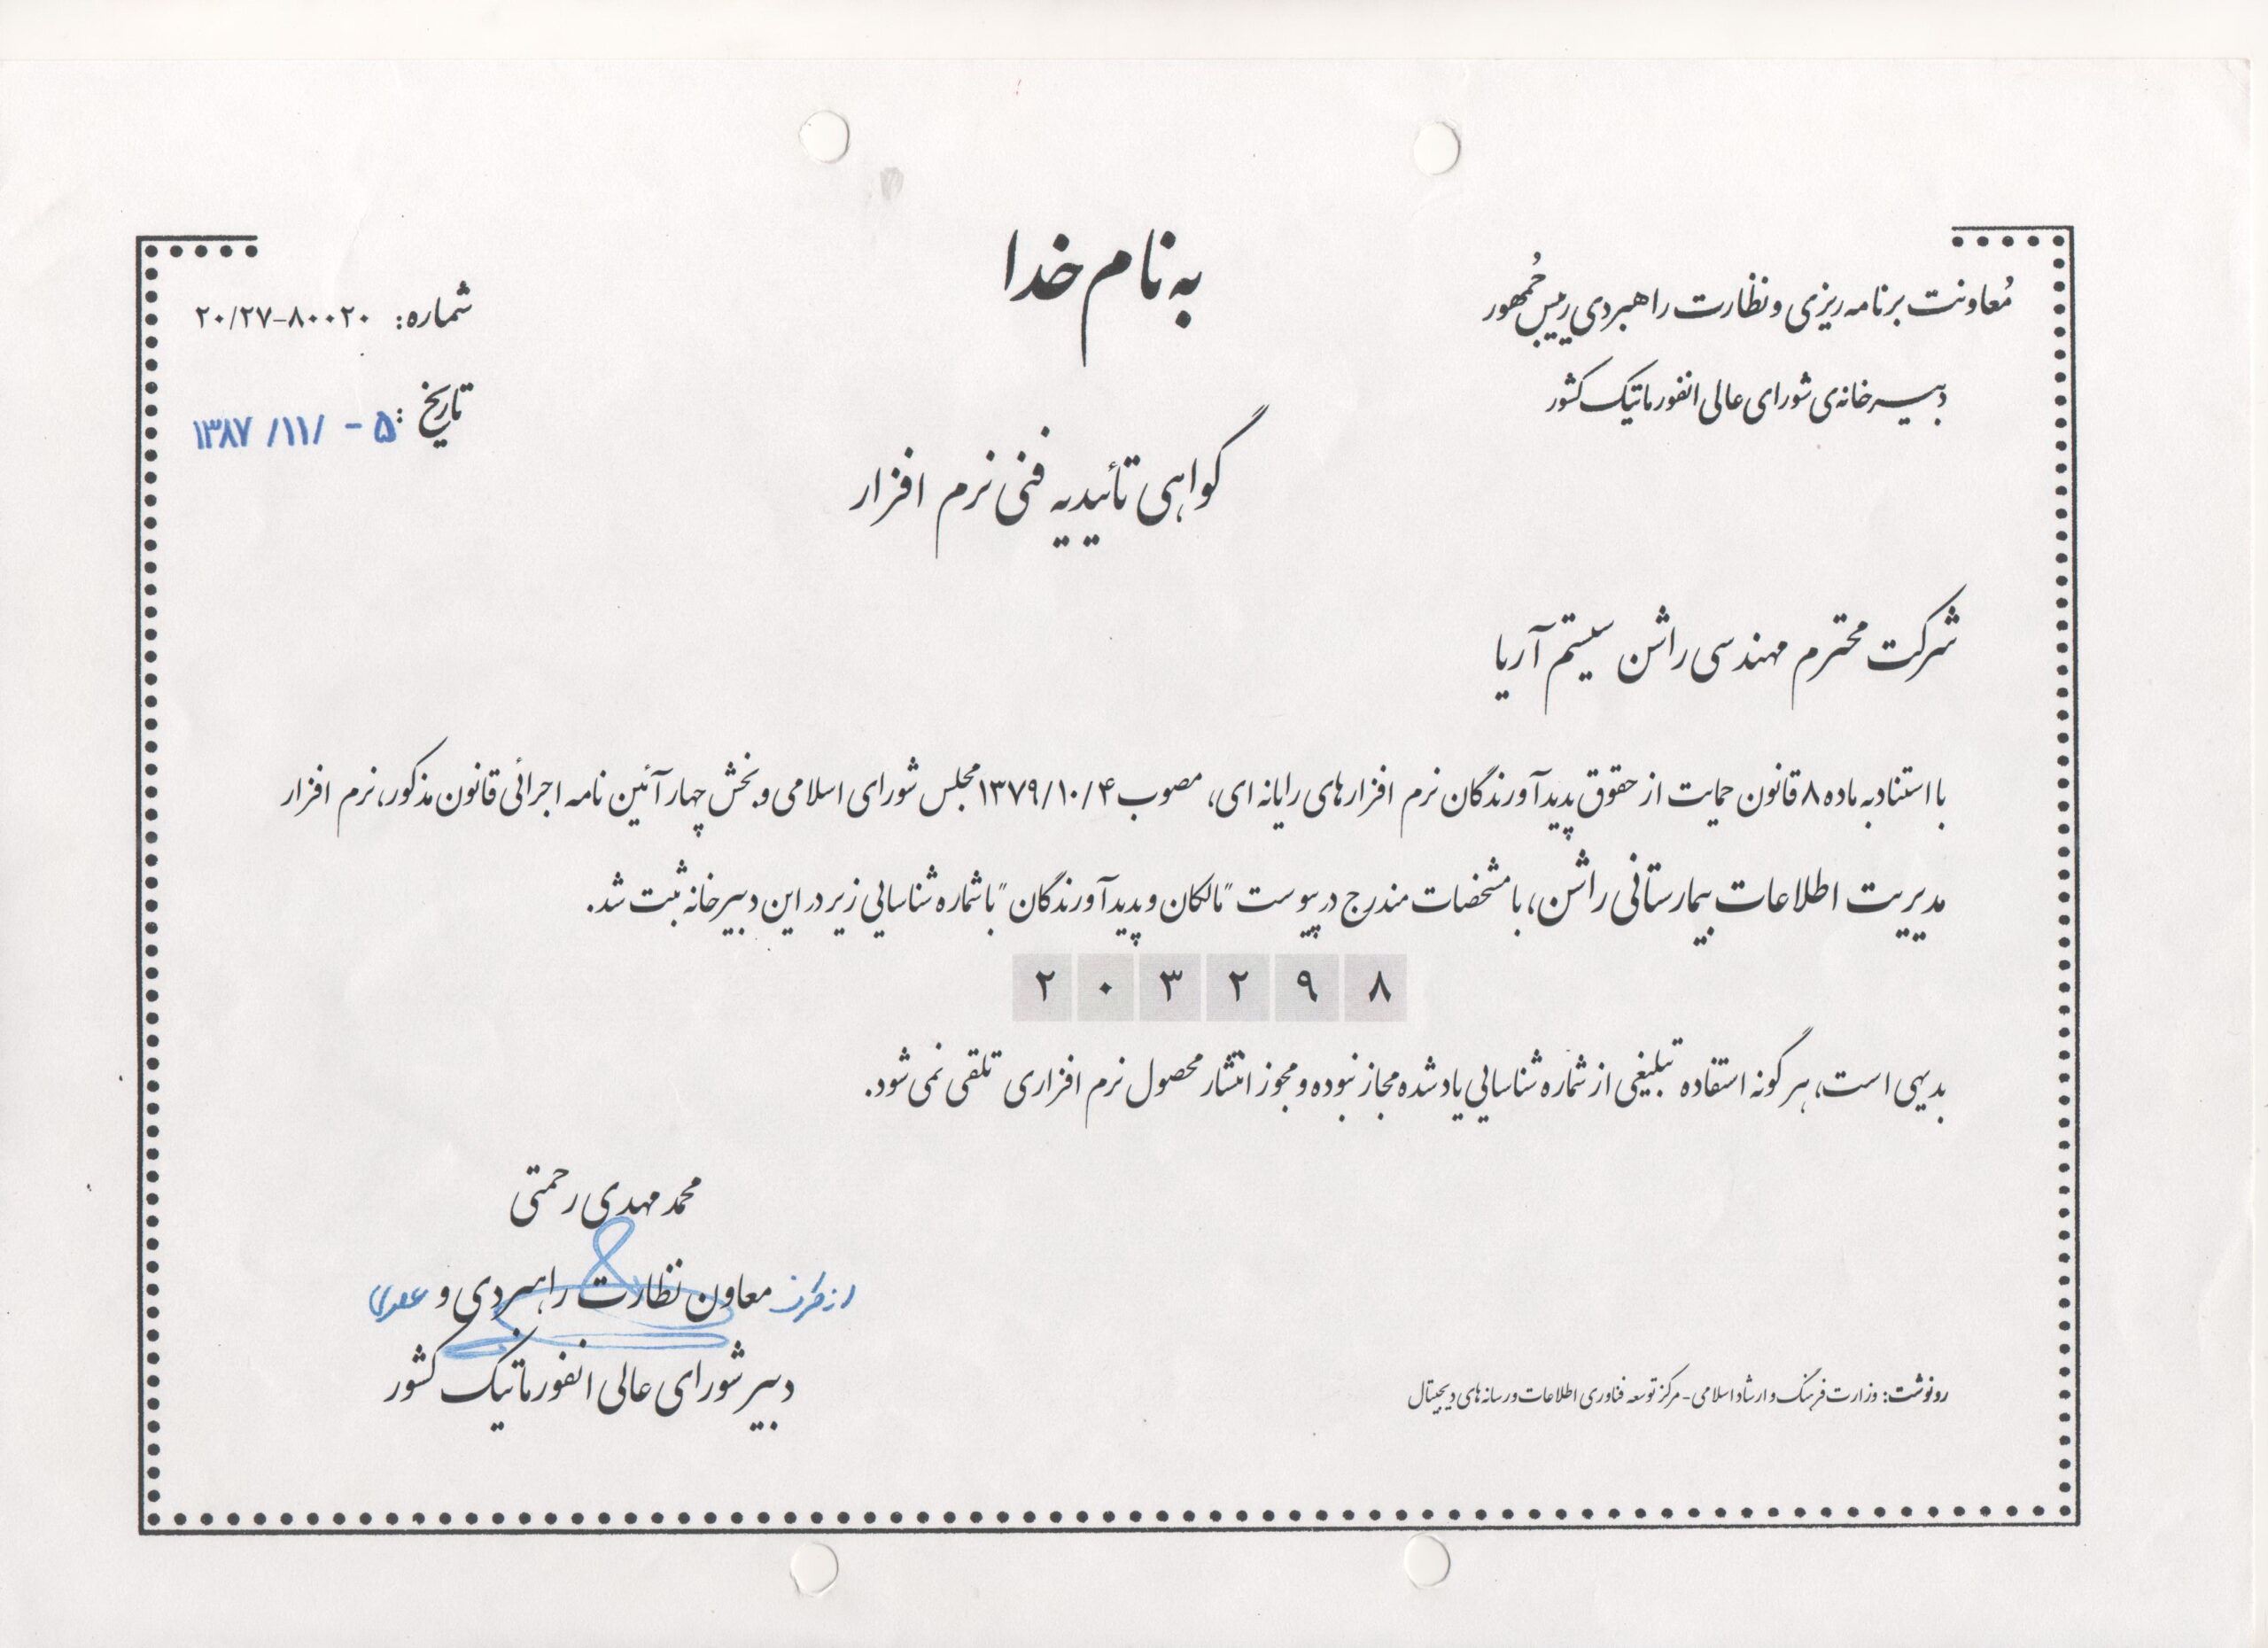 به نام خدا
معاونت برنامه ریزی و نظارت راهبردی رییس جُمهور
دبیرخانه‌ی شورای عالی انفورماتیک کشور
شماره: ۲۰/۲۷-۸۰۰۲۰
تاریخ: ۵ - /۱۱/ ۱۳۸۷
گواهی تأییدیه فنی نرم افزار
شرکت محترم مهندسی راشن سیستم آریا
با استناد به ماده ۸ قانون حمایت از حقوق پدیدآورندگان نرم افزارهای رایانه ای، مصوب ۱۳۷۹/۱۰/۴ مجلس شورای اسلامی و بخش چهار آئین نامه اجرائی قانون مذکور، نرم افزار
مدیریت اطلاعات بیمارستانی راشن، با مشخصات مندرج در پیوست "مالکان و پدیدآورندگان" با شماره شناسایی زیر در این دبیرخانه ثبت شد.
۲ ۰ ۳ ۲ ۹ ۸
بدیهی است، هر گونه استفاده تبلیغی از شماره شناسایی یاد شده مجاز نبوده و مجوز انتشار محصول نرم افزاری تلقی نمی شود.
محمد مهدی رحمتی
از طرف معاون نظارت راهبردی و
دبیر شورای عالی انفورماتیک کشور
رونوشت: وزارت فرهنگ و ارشاد اسلامی - مرکز توسعه فناوری اطلاعات و رسانه های دیجیتال